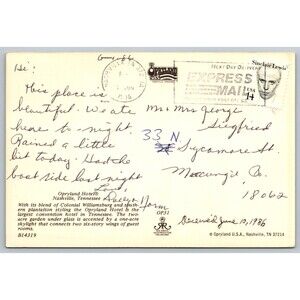 6-9-86
Hi:
This place is
beautiful. We ate
here to-night.
Rained a little
bit today. Had the
boat ride last night
Love,
Opryland Hotel®
Nashville, Tennessee
With its blend of Colonial Williamsburg and southern plantation styling the Opryland Hotel is the
largest convention hotel in Tennessee. The two-
acre garden under glass is accented by a one-acre
skylight that connects two six-story wings of guest
rooms.
B14319
OP31
OPRYLAND
NEXT DAY DELIVERY
EXPRESS
MAIL
Sinclair Lewis
USA
14
Mr. Mrs. George
Siegfried
33 N Sycamore St.
Macungie, Pa.
18062
Received June 12, 1986
© Opryland U.S.A., Nashville, TN 37214